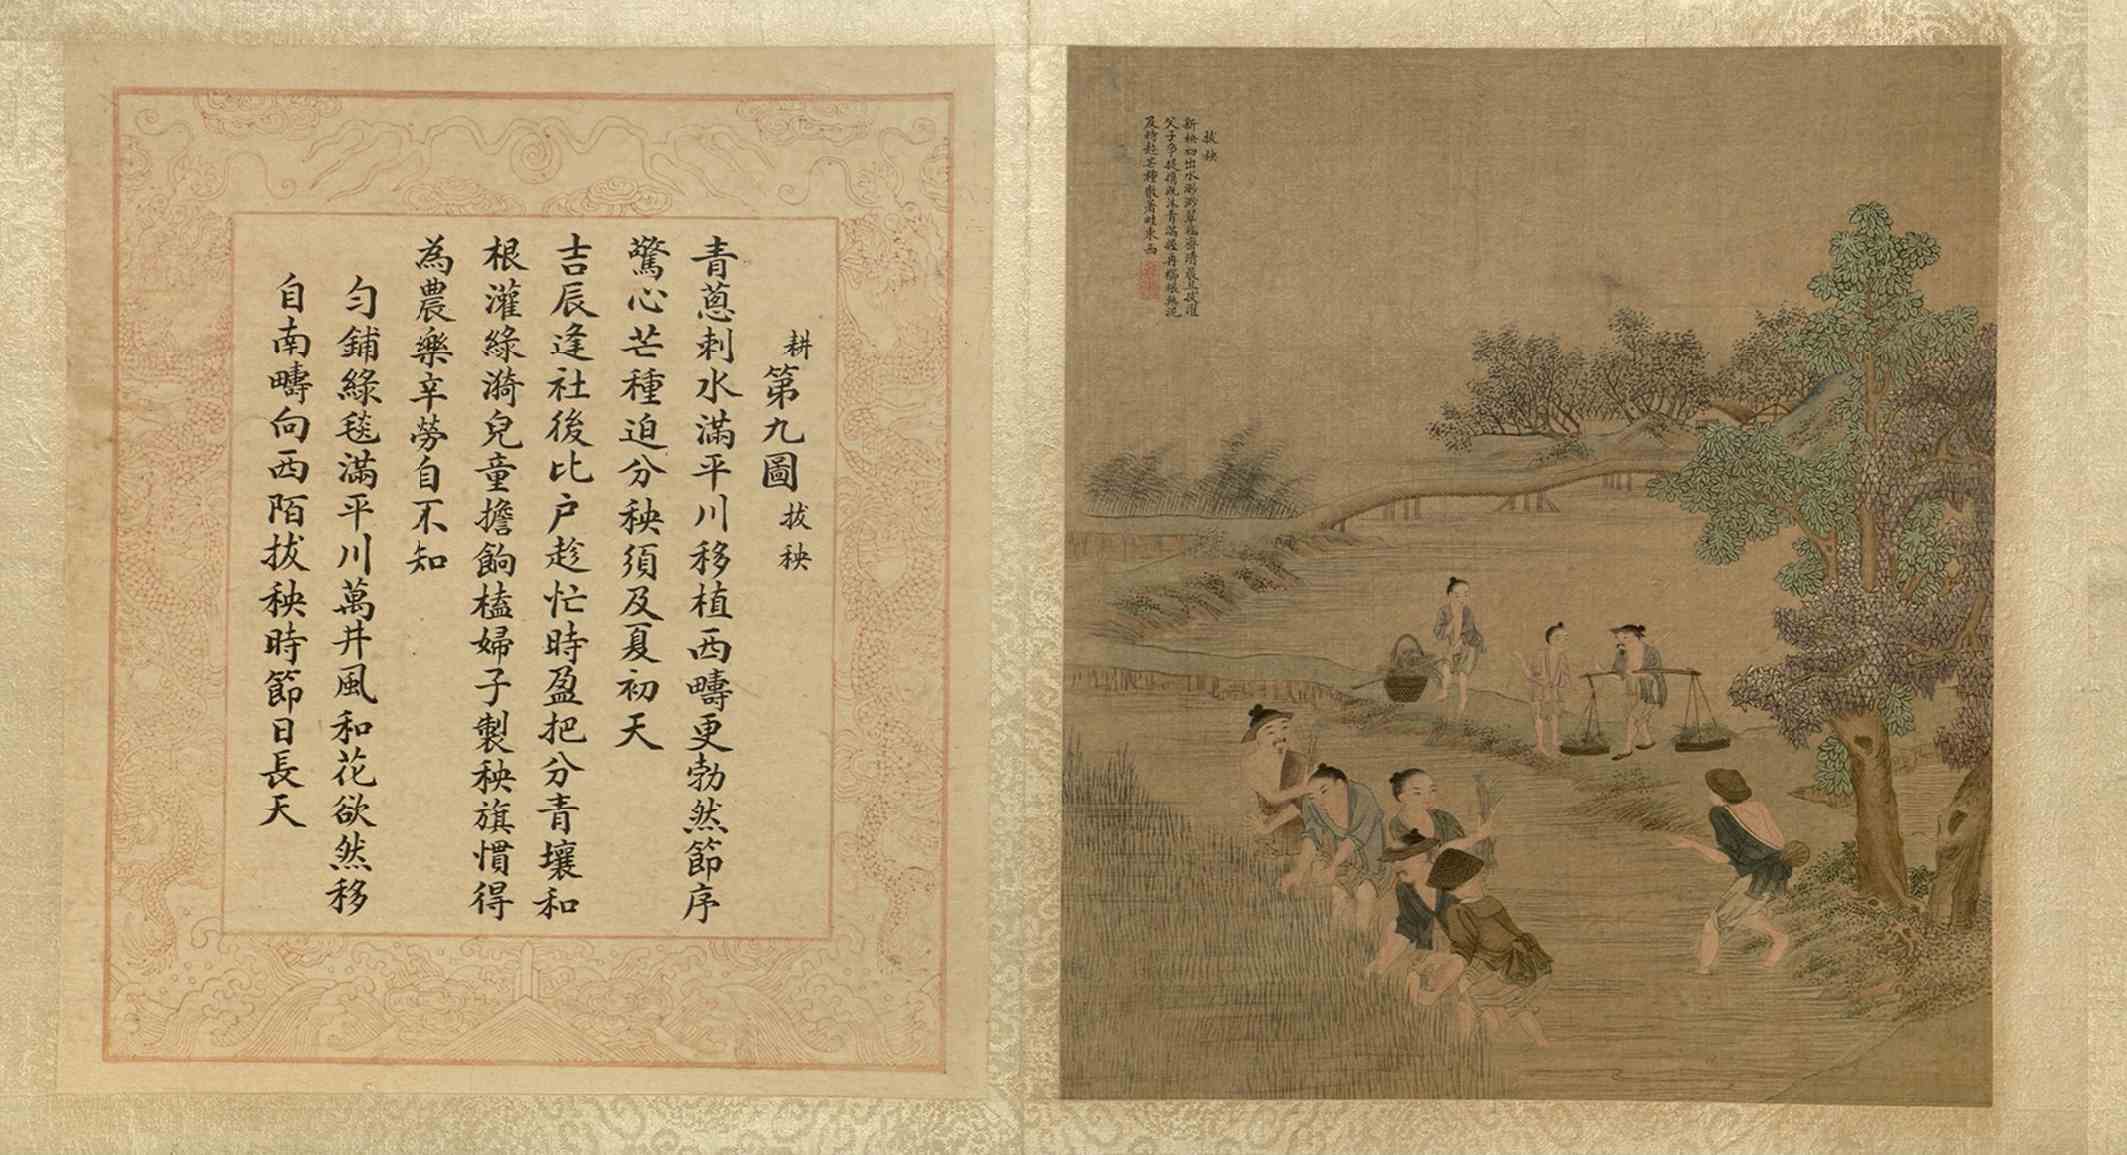 耕第九圖 拔秧
青蔥刺水滿平川移植西疇更勃然節序
驚心芒種迫分秧須及夏初天
吉辰逢社後比户趁忙時盈把分青壤和
根灌綠漪兒童擔餉榼婦子製秧旗慣得
為農樂辛勞自不知
勻鋪綠毯滿平川萬井風和花欲然移
自南疇向西陌拔秧時節日長天
拔秧
新秧初出水渺渺翠毯齊清晨且拔擢
父子爭提攜既沐青滿握再櫛根無泥
及時趁芒種散著畦東西